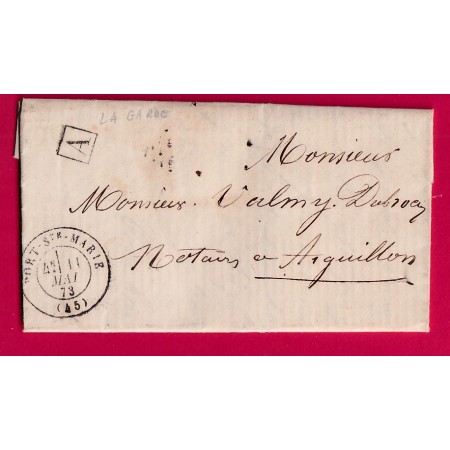 LA GARDE
A
Monsieur
Monsieur Valmy Dubroca
Notaire a Aiguillon
PORT-STE-MARIE
4E 11
MAI
73
(45)